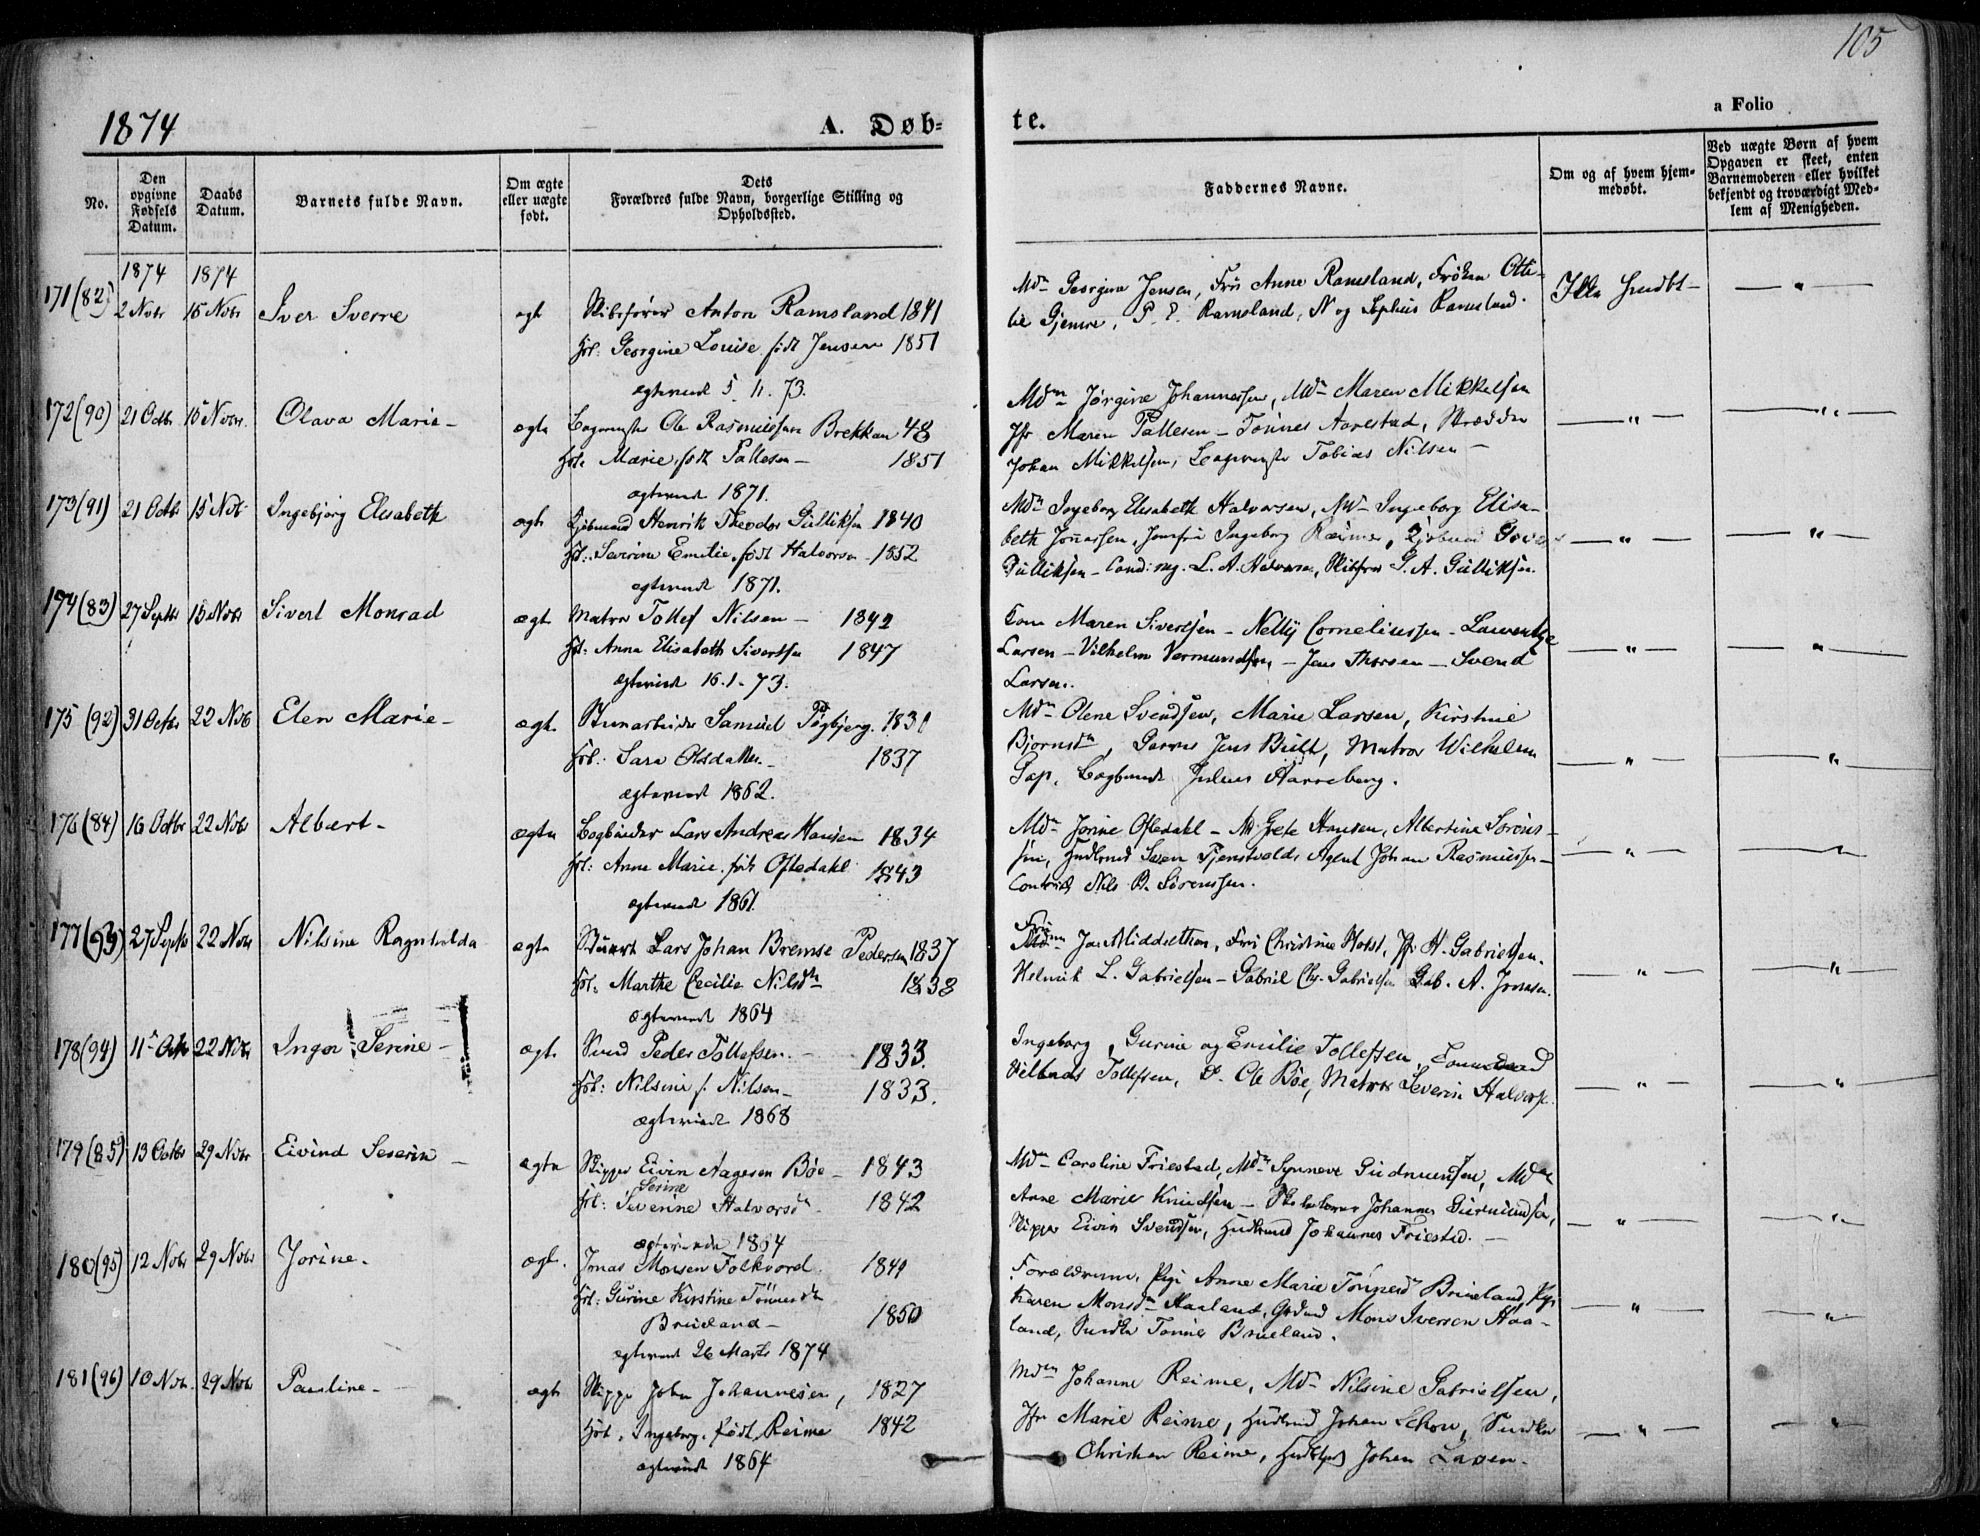 105
1874
A. Døb-
te.
a Folio
No.
Den opgivne Fødsels Datum.
Daabs Datum.
Barnets fulde Navn.
Om ægte eller uægte født.
Dets Forældres fulde Navn, borgerlige Stilling og Opholdssted.
Faddernes Navne.
Om og af hvem hjemmedøbt.
Ved uægte Børn af hvem Opgaven er skeet, enten Barnemoderen eller hvilket bekjendt og troværdigt Medlem af Menigheden.
1874 1874
171(82) 2 Novbr 15 Novbr Iver Sverre ægte Skibsfører Anton Ramsland 1841
Hst: Georgine Louise født Jensen 1851
ægteviede 5. 11. 73.
Mdm Georgine Jensen, Frü Anne Ramsland, Frøken Otti-
lie Gjemre, P. E. Ramsland, N og Sophus Ramsland.
Ikke hmdbt — " —
172(90) 21 Octbr 15 Novbr. Olava Marie - ægte Ole Rasmussen Brekkan 48
Hst. Marie født Pallesen — 1851
ægteviede 1871.
Mdm Jørgine Johannessen, Mdm Maren Mikkelsen
Jfr Maren Pallesen - Tönnes Aarestad, Skrædder
Johan Mikkelsen, Tobias Nilsen —
173(91) 21 Octbr 15 Nob Ingebjørg Elisabeth ægte Kjøbmand Henrik Theodor Gülliksen 1840
Hst: Severine Emilie født Halvorsen - 1852
ægteviede 1871.
Mdm Ingeborg Elisabeth Halvorsen, Mdm Ingeborg Elisa-
beth Jonassen, Jomfrü Ingeborg Reime, Kjøbmd
Gülliksen - Cand: mag. L. A. Halvorsen, Skibsfører G. A. Gülliksen.
174(83) 27 Septbr 15 Novbr Sivert Monrad ægte Matros Tollef Nilsen — 1842
Hst: Anna Elisabeth Sivertsen 1847
ægteviede 16. 1. 73.
Maren Sivertsen - Nelly Corneliussen - Lawentze
Larsen - Vilhelm Vermundsen - Jens Thorsen - Svend
Larsen.
175 (92) 31 Octbr 22 Nob Elen Marie - ægte Stenarbeider Samüel Tøgbjerg. 1831
Hst: Sara Olsdatter. 1837
ægteviede 1862.
Mdm Olene Svendsen, Marie Larsen, Kirstine
Bjørnsdtr, Garver Jens Büll, Matros Wilhelm
Gap, Bogbinder Julius Harreberg.
176(84) 16 Octbr 22 Novbr Albert - ægte Bogbinder Lars Andreas Hansen 1834
Hst: Anne Marie født Oftedahl 1843
ægteviede 1861.
Mdm Jorine Oftedahl - M. Grete Hansen, Albertine Sørens-
sen, Hudlmd Sven Tjenstvold, Agent Johan Rasmussen —
Nils B. Sørenssen.
177(93) 27 Septbr 22 Novbr Nilsine Ragnhilda ægte Stuert Lars Johan Bremse Pedersen 1837
Hst: Marthe Cecilie Nilsdtr 1838
ægteviede 1864
Middelthon, Frü Christine Holst, Jfr H. Gabrielsen.
Helmik L. Gabrielsen - Gabriel Chr. Gabrielsen Gab. A. Jonasen.
178(94) 11 Octbr 22 Novbr Inger Serine - ægte Svend Peder Tollefsen. — 1833.
Hst: Nilsine f. Nilsen - 1833.
ægteviede 1868
Ingeborg, Gurine og Emilie Tollefsen,
Tollefsen, Ole Bøe, Matros Severin Halvors.
179(85) 13 Octbr 29 Novbr Eivind Severin — ægte Skipper Eivin Aagesen Bøe - 1843
Serine
Hst: Severine Halvorsdtr 1842
ægteviede 1864
Mdm Caroline Friestad, Mdm Synneve Gudmundsen, Mdm
Anne Marie Knudsen - Skolelærer Johannes Gudmundsen,
Skipper Eivin Svendsen, Hudlmd Johannes Friestad. —
180(95) 12 Novbr 29 Novbr Jorine. ægte. Jonas Monsen Folkvord. 1849
Hst: Gurine Kirstine Tönnesdtr
Brueland — 1850
ægteviede 26 Marts 1874
Forældrene, Pige Anne Marie Tönnesdtr Brueland, Pige
Karen Monsdtr Haaland, Grdmd Mons Iversen Haa-
land, Snedker Tönnes Brueland.
181(96) 10 Nobr. 29 Novbr Pauline — ægte Skipper John Johannesen, 1827
Hst. Ingeborg. født Reime 1842
ægteviede 1864
Mdm Johanne Reime, Mdm Nilsine Gabrielsen,
Jfr Marie Reime, Hudlmd Johan Schou, Snedker
Christian Reime, Johan Larsen —